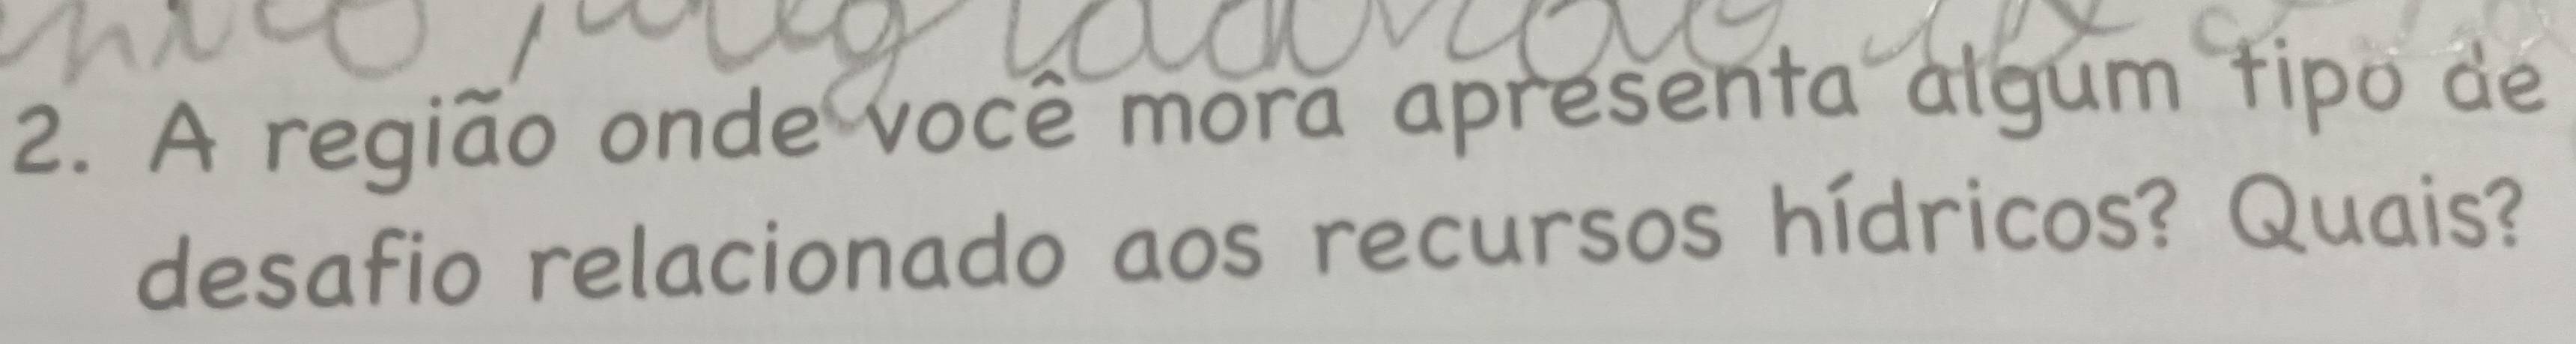 2. A região onde você mora apresenta algum tipo de
desafio relacionado aos recursos hídricos? Quais?